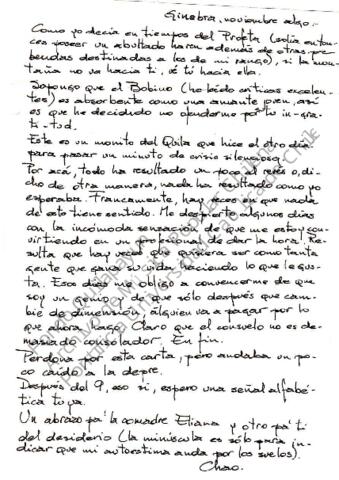 Ginebra, noviembre algo.-
Como yo decía en tiempos del Profeta (solía enton-
ces poseer un abultado harem además de otras pre-
bendas destinadas a los de mi rango), si la mon-
taña no va hacia ti, vé tú hacia ella.
Supongo que el Bobino (he leído críticas excelen-
tes) es absorbente como una amante joven, así
es que he decidido no ofenderme por tu in-gra-
ti-tud.
Este es un monito del Quila que hice el otro día
para pasar un minuto de crisis silencioso.
Por acá, todo ha resultado un poco al revés o, di-
cho de otra manera, nada ha resultado como yo
esperaba. Francamente, hay veces en que nada
de esto tiene sentido. Me despierto algunos días
con la incómoda sensación de que me estoy con-
virtiendo en un profesional de dar la hora. Re-
sulta que hay veces que quisiera ser como tanta
gente que gana su vida haciendo lo que le gus-
ta. Esos días me obligo a convencerme de que
soy un genio y de que sólo después que cam-
bie de dimensión, alguien va a pagar por lo
que ahora hago. Claro que el consuelo no es de-
masiado consolador. En fin.
Perdona por esta carta, pero andaba un po-
co caído a la depre.
Después del 9, eso sí, espero una señal alfabé-
tica tuya.
Un abrazo pa' la comadre Eliana y otro pa' ti
del desiderio (la minúscula es sólo para in-
dicar que mi autoestima anda por los suelos).
Chao.